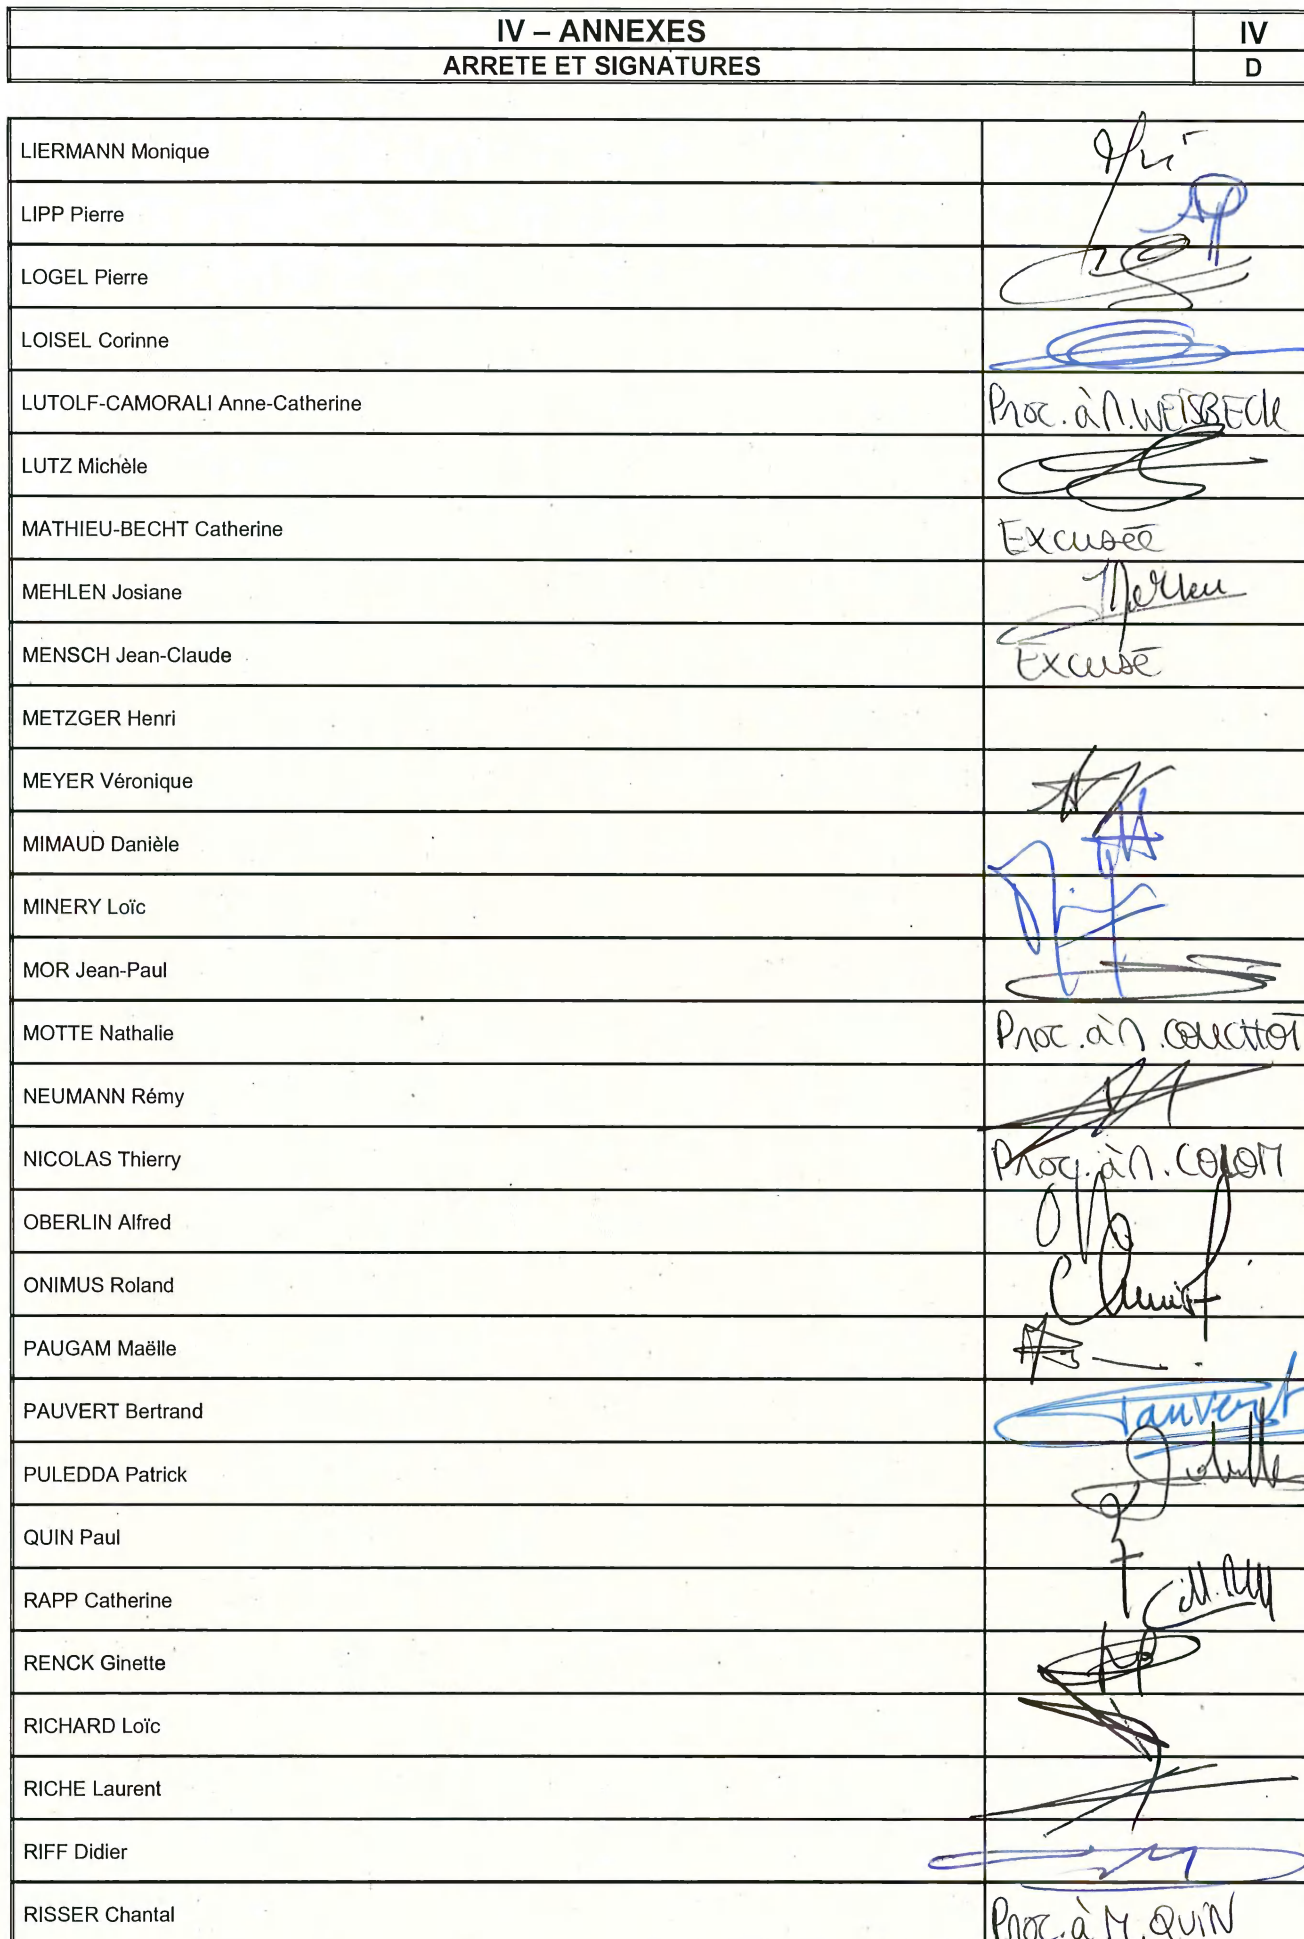 IV – ANNEXES IV
ARRETE ET SIGNATURES D
LIERMANN Monique
LIPP Pierre
LOGEL Pierre
LOISEL Corinne
LUTOLF-CAMORALI Anne-Catherine Proc. à M. WEISBECK
LUTZ Michèle
MATHIEU-BECHT Catherine Excusée
MEHLEN Josiane
MENSCH Jean-Claude Excusé
METZGER Henri
MEYER Véronique
MIMAUD Danièle
MINERY Loïc
MOR Jean-Paul
MOTTE Nathalie Proc. à M. COUCHOT
NEUMANN Rémy
NICOLAS Thierry Proc. à M. COLOM
OBERLIN Alfred
ONIMUS Roland
PAUGAM Maëlle
PAUVERT Bertrand Pauvert
PULEDDA Patrick
QUIN Paul
RAPP Catherine
RENCK Ginette
RICHARD Loïc
RICHE Laurent
RIFF Didier
RISSER Chantal Proc. à M. QUIN